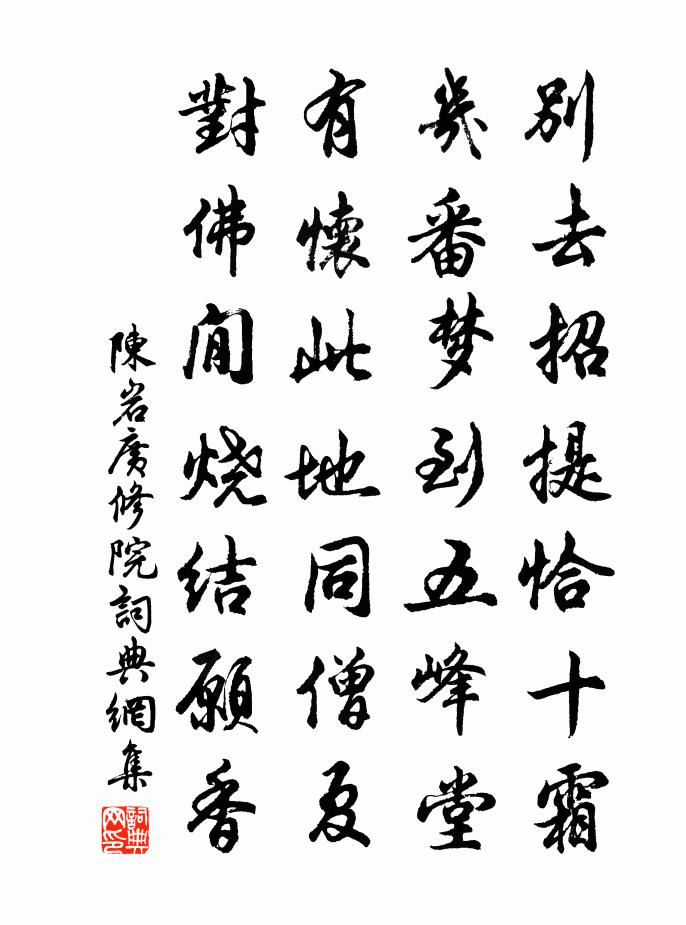 別去招提恰十霜
幾番梦到五峰堂
有懷此地同僧夏
對佛閒烧结願香
陳岩廣修院詞典網集
詞典网印